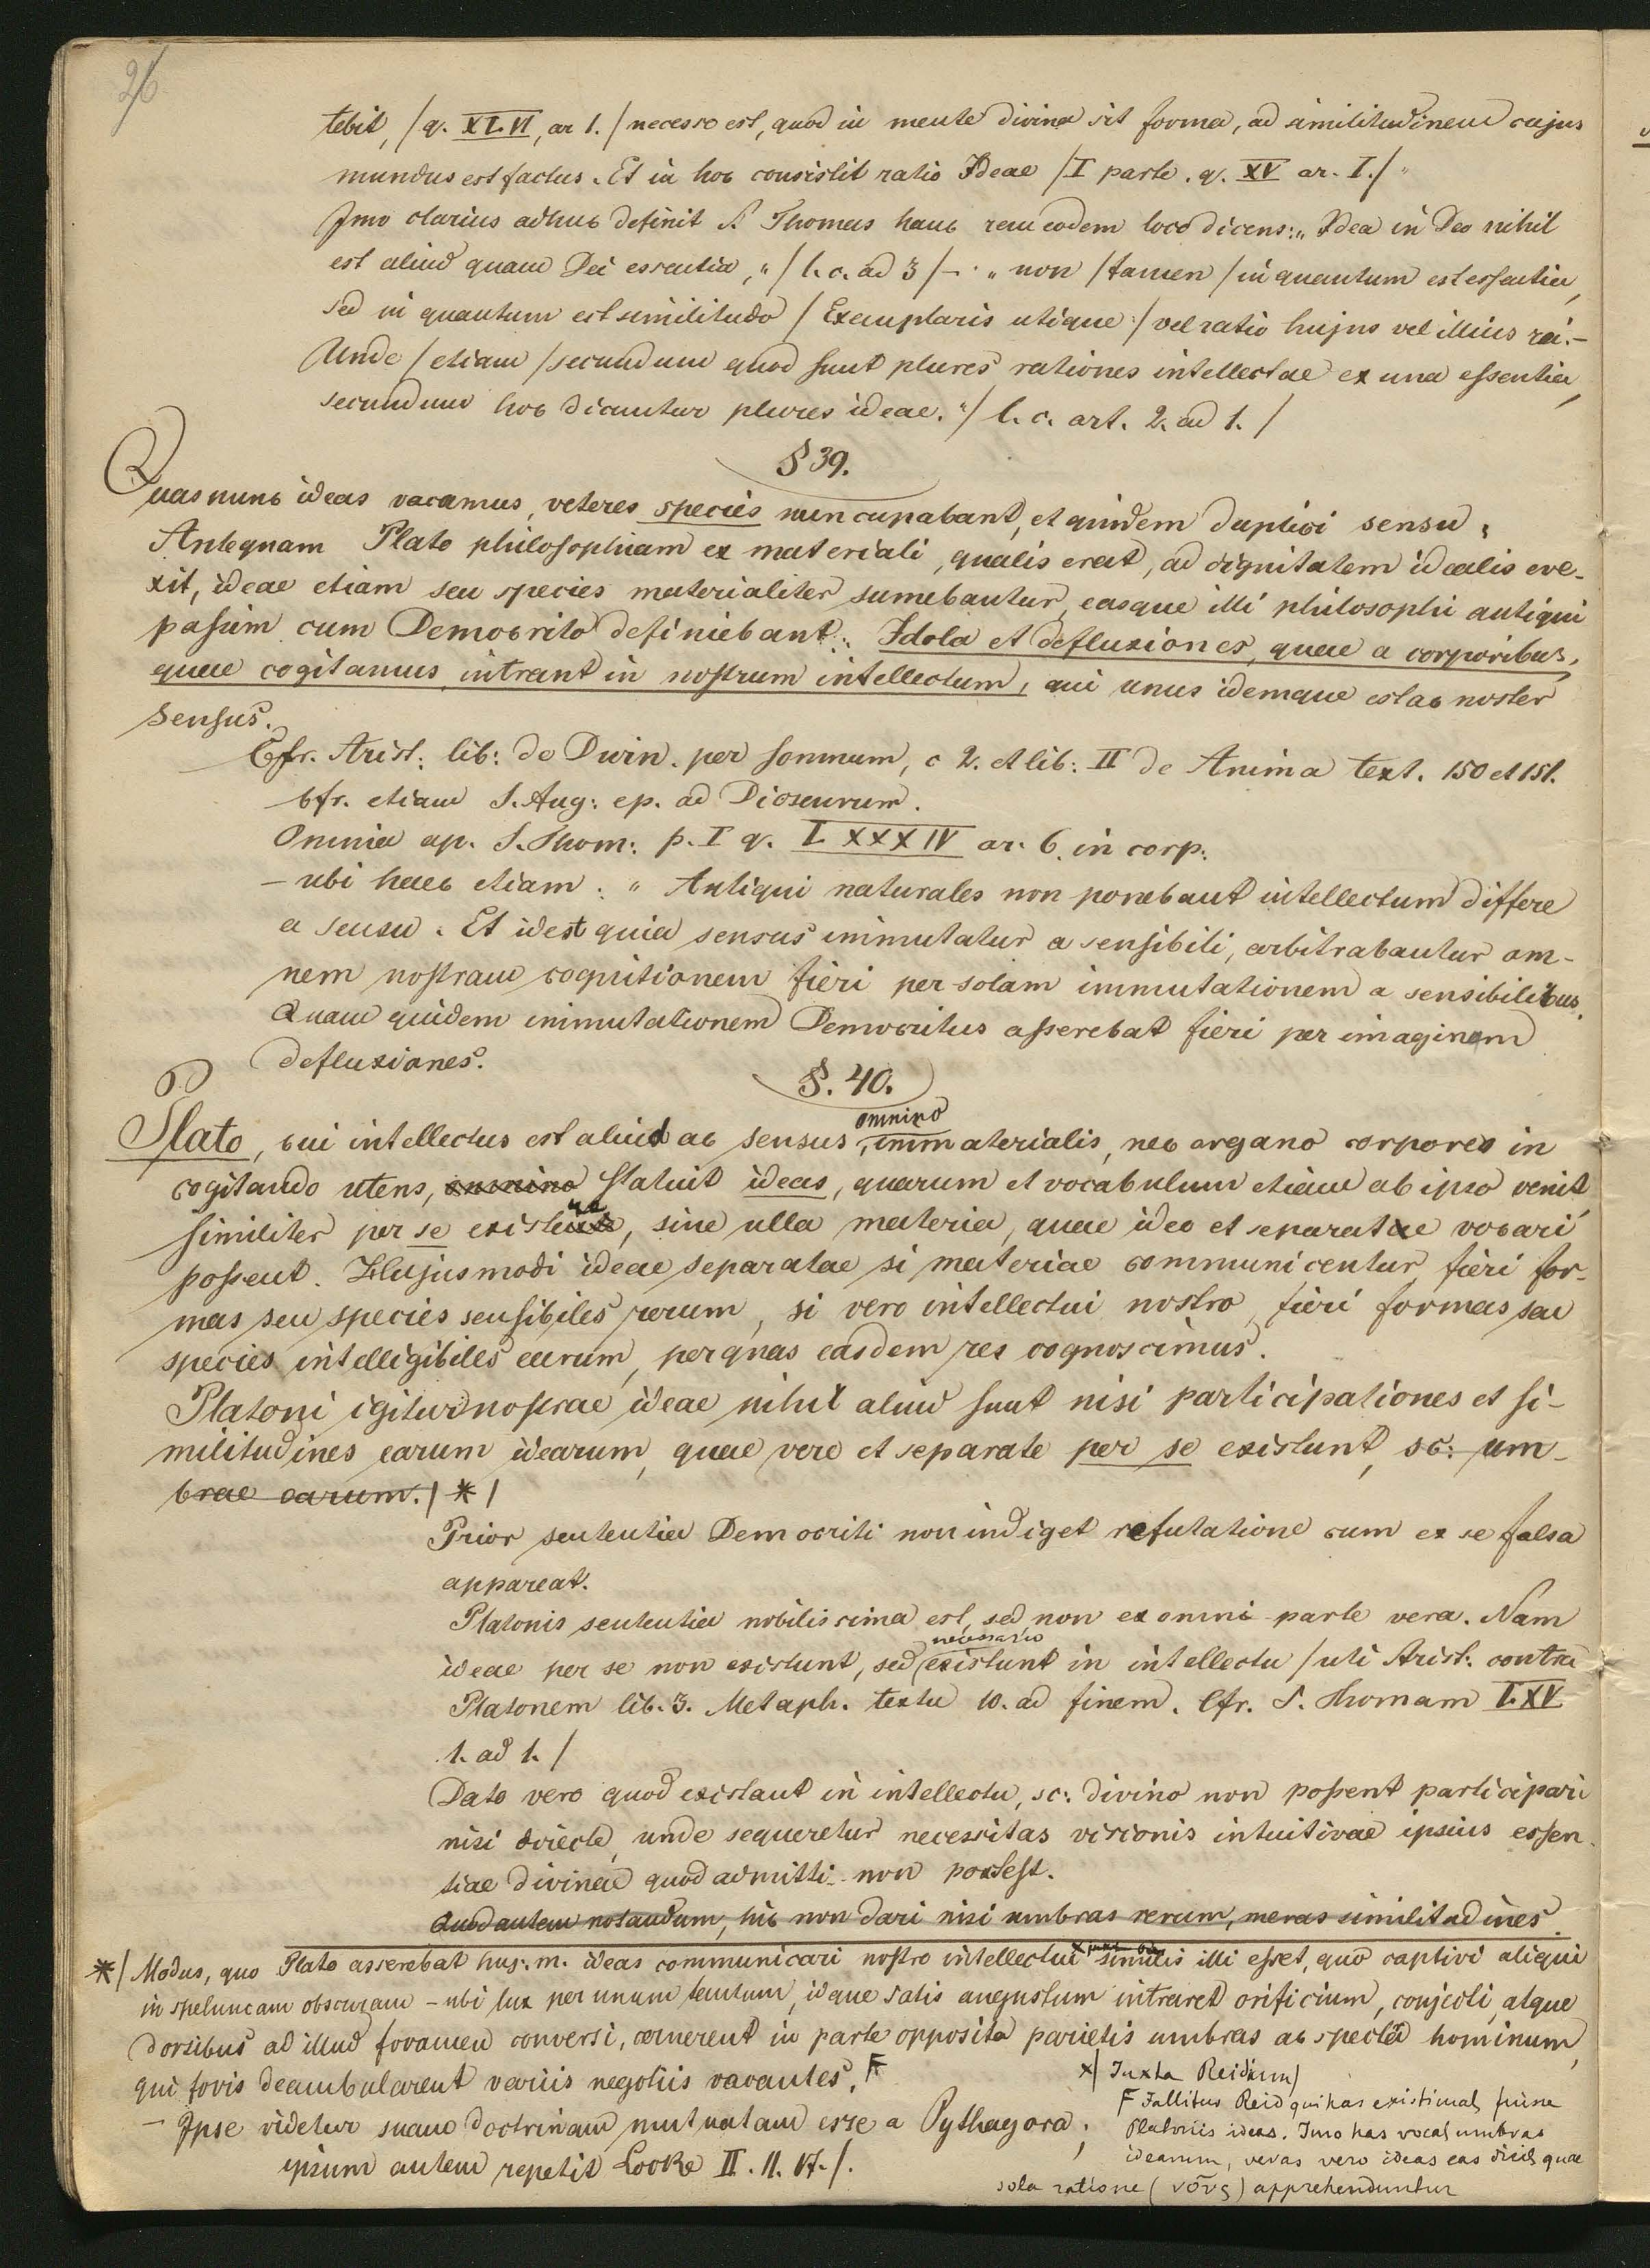 26
tebit, /q. XLVI, ar 1./ necesse est, quod in mente divina sit forma, ad similitudinem cujus
mundus est factus. Et in hoc consistit ratio Ideae /I parte. q. XV ar. I./"
Imo clarius adhuc definit S. Thomas hanc rem eodem loco dicens: „Idea in Deo nihil
est aliud quam Dei essentia," /l. c. ad 3/ – „non /tamen/ in quantum est essentia,
sed in quantum est similitudo /Exemplaris utique:/ vel ratio hujus vel illius rei. –
Unde /etiam/ secundum quod sunt plures rationes intellectae ex una essentia,
secundum hoc dicuntur plures ideae."/ l. c. art. 2. ad 1./
§ 39.
Quas nunc ideas vocamus, veteres species nuncupabant, et quidem duplici sensu:
Antequam Plato philosophiam ex materiali, qualis erat, ad dignitatem idealis eve-
xit, ideae etiam seu species materialiter sumebantur, easque illi philosophi antiqui
passim cum Democrito definiebant: Idola et defluxiones, quae a corporibus,
quae cogitamus, intrant in nostrum intellectum, qui unus idemque est ac noster
sensus.
Cfr. Arist: lib: de Divin. per somnum, c 2. et lib: II de Anima text. 150 et 151.
cfr. etiam S. Aug: ep. ad Dioscurum.
Omnia ap. S. Thom: p. I q. LXXXIV ar. 6. in corp:
– ubi haec etiam: „Antiqui naturales non ponebant intellectum differe
a sensu. Et id est quia sensus immutatur a sensibili, arbitrabantur om-
nem nostram cognitionem fieri per solam immutationem a sensibilibus.
Quam quidem immutationem Democritus asserebat fieri per imaginem
defluxiones.
§. 40.
omnino
Plato, cui intellectus est aliud ac sensus, immaterialis, nec organo corporeo in
cogitando utens, omnino statuit ideas, quarum et vocabulum etiam ab ipso venit,
similiter per se existere, sine ulla materia, quae ideo et separatae vocari
possent. Hujusmodi ideae separatae si materiae communicentur, fieri for-
mas seu species sensibiles rerum, si vero intellectui nostro, fieri formas seu
species intelligibiles earum, per quas easdem res cognoscimus.
Platoni igitur nostrae ideae nihil aliud sunt nisi participationes et si-
militudines earum idearum, quae vere et separate per se existunt, sc: um-
brae earum. /*/
Prior sententia Democriti non indiget refutatione cum ex se falsa
appareat.
Platonis sententia nobilissima est, sed non ex omni parte vera. Nam
necessario
ideae per se non existunt, sed existunt in intellectu /uti Arist: contra
Platonem lib. 3. Metaph. textu 10. ad finem. Cfr. S. Thomam I. XV
1. ad 1./
Dato vero quod existant in intellectu, sc: divino non possent participari
nisi directe, unde sequeretur necessitas visionis intuitivae ipsius essen-
tiae divinae quod admitti non potest.
Quod autem notandum, hic non dari nisi umbras rerum, meras similitudines
*/ Modus, quo Plato asserebat huj. m. ideas communicari nostro intellectui x similis illi esset, quo captivi aliqui
in speluncam obscuram – ubi lux per unum tantum, idque satis angustum intraret orificium, conjecti, atque
dorsibus ad illud foramen conversi, cernerent in parte opposita parietis umbras ac spectra hominum,
qui foris deambularent variis negotiis vacantes. F
– Ipse videtur suam doctrinam mutuatam esse a Pythagora;
ipsum autem repetit Locke II. 11. 17./.
x/ Iuxta Reidium/
F Fallitur Reid qui has existimat fuisse
Platonis ideas. Imo has vocat umbras
idearum, veras vero ideas eas dicit quae
sola ratione (νοῦς) apprehenduntur